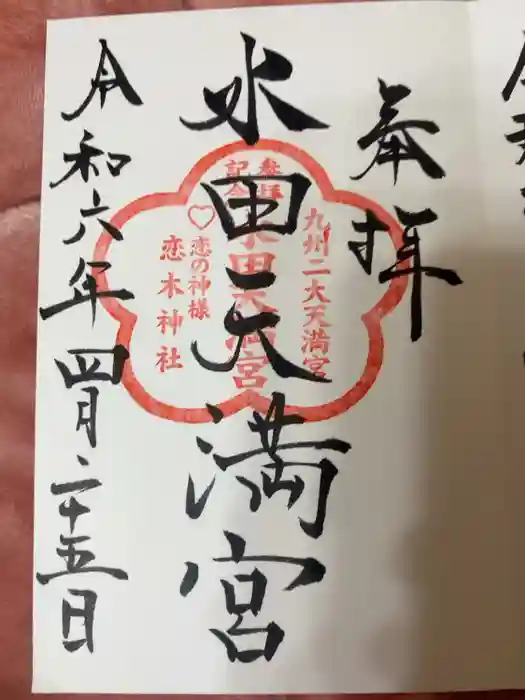 奉拝
水田天満宮
九州二大天満宮
参拝
記念
水田天満宮
♡恋の神様
恋木神社
令和六年四月二十五日